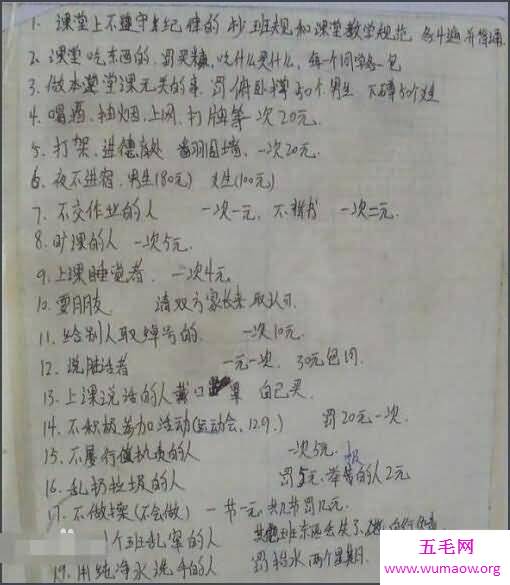 1. 课堂上不遵守纪律的 抄班规和课堂教学规范 各4遍 并背诵
2. 课堂吃东西的, 罚买糖, 吃什么买什么, 每一个同学各一包
3. 做本堂课无关的事 罚俯卧撑50个男生 下蹲50个女生
4. 喝酒、抽烟、上网、打牌等一次20元.
5. 打架、进德育处 翻围墙, 一次20元.
6. 夜不进宿, 男生(80元) 女生(100元)
7. 不交作业的人 一次一元, 不背书 一次二元.
8. 旷课的人 一次5元.
9. 上课睡觉者 一次4元
10. 耍朋友 请双方家长来 取认可.
11. 给别人取绰号的 一次10元.
12. 说脏话者 一元一次, 30元包月.
13. 上课说话的人戴口罩 自己买.
14. 不积极参加活动(运动会、12.9.) 罚20元一次.
15. 不履行值机责的人 一次5元.
16. 乱扔垃圾的人 罚5元 举报的人2元
17. 不做操(不会做) 一节一元, 共几节罚几元.
个班乱窜的人 班东西丢失了
19. 用纯净水洗手的人 罚抬水两个星期.
五毛网
www.wumaow.org